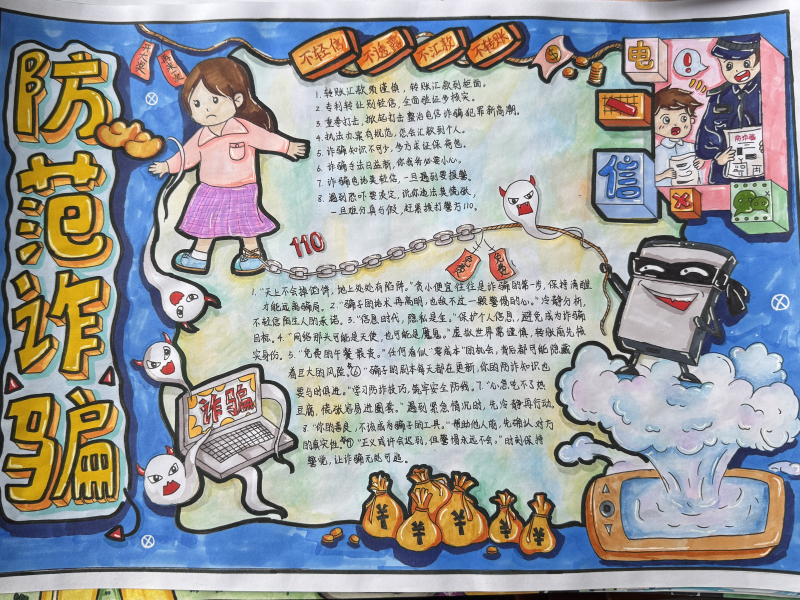 防范诈骗
不轻信
不透露
不汇款
不转账
电
信
诈骗
110
免费
1. 转账汇款须谨慎，转账汇款到柜面。
2. 专利转让别轻信，全面验证多核实。
3. 重拳打击，掀起打击整治电信诈骗犯罪新高潮。
4. 执法办案有规范，怎会汇款到个人。
5. 诈骗知识不可少，多方求证保
6. 诈骗手法日益新，你我务必要小心。
7. 诈骗电话莫轻信，一旦遇到要报警。
8. 遇到恐吓要淡定，说你违法莫慌张。
一旦难分真与假，赶紧拨打警方110。
1.“天上不会掉馅饼，地上处处有陷阱。”贪小便宜往往是诈骗的第一步，保持清醒
才能远离骗局。2.“骗子的话术再高明，也敌不过一颗警惕的心。”冷静分析，
不轻信陌生人的承诺。3.“信息时代，隐私是金。”保护个人信息，避免成为诈骗
目标。4.“网络那头可能是天使，也可能是魔鬼。”虚拟世界需谨慎，转账前先核
实身份。5.“免费的午餐最贵。”任何看似“零成本”的机会，背后都可能隐藏
着巨大的风险。6“骗子的剧本每天都在更新，你的防诈知识也
要与时俱进。”学习防诈技巧，筑牢安全防线。7.“心急吃不了热
豆腐，慌张容易进圈套。”遇到紧急情况时，先冷静再行动。
8.“你的善良，不该成为骗子的工具。”帮助他人前，先确认对方
的真实性。“正义或许会迟到，但警惕永远不会。”时刻保持
警觉，让诈骗无处可逃。